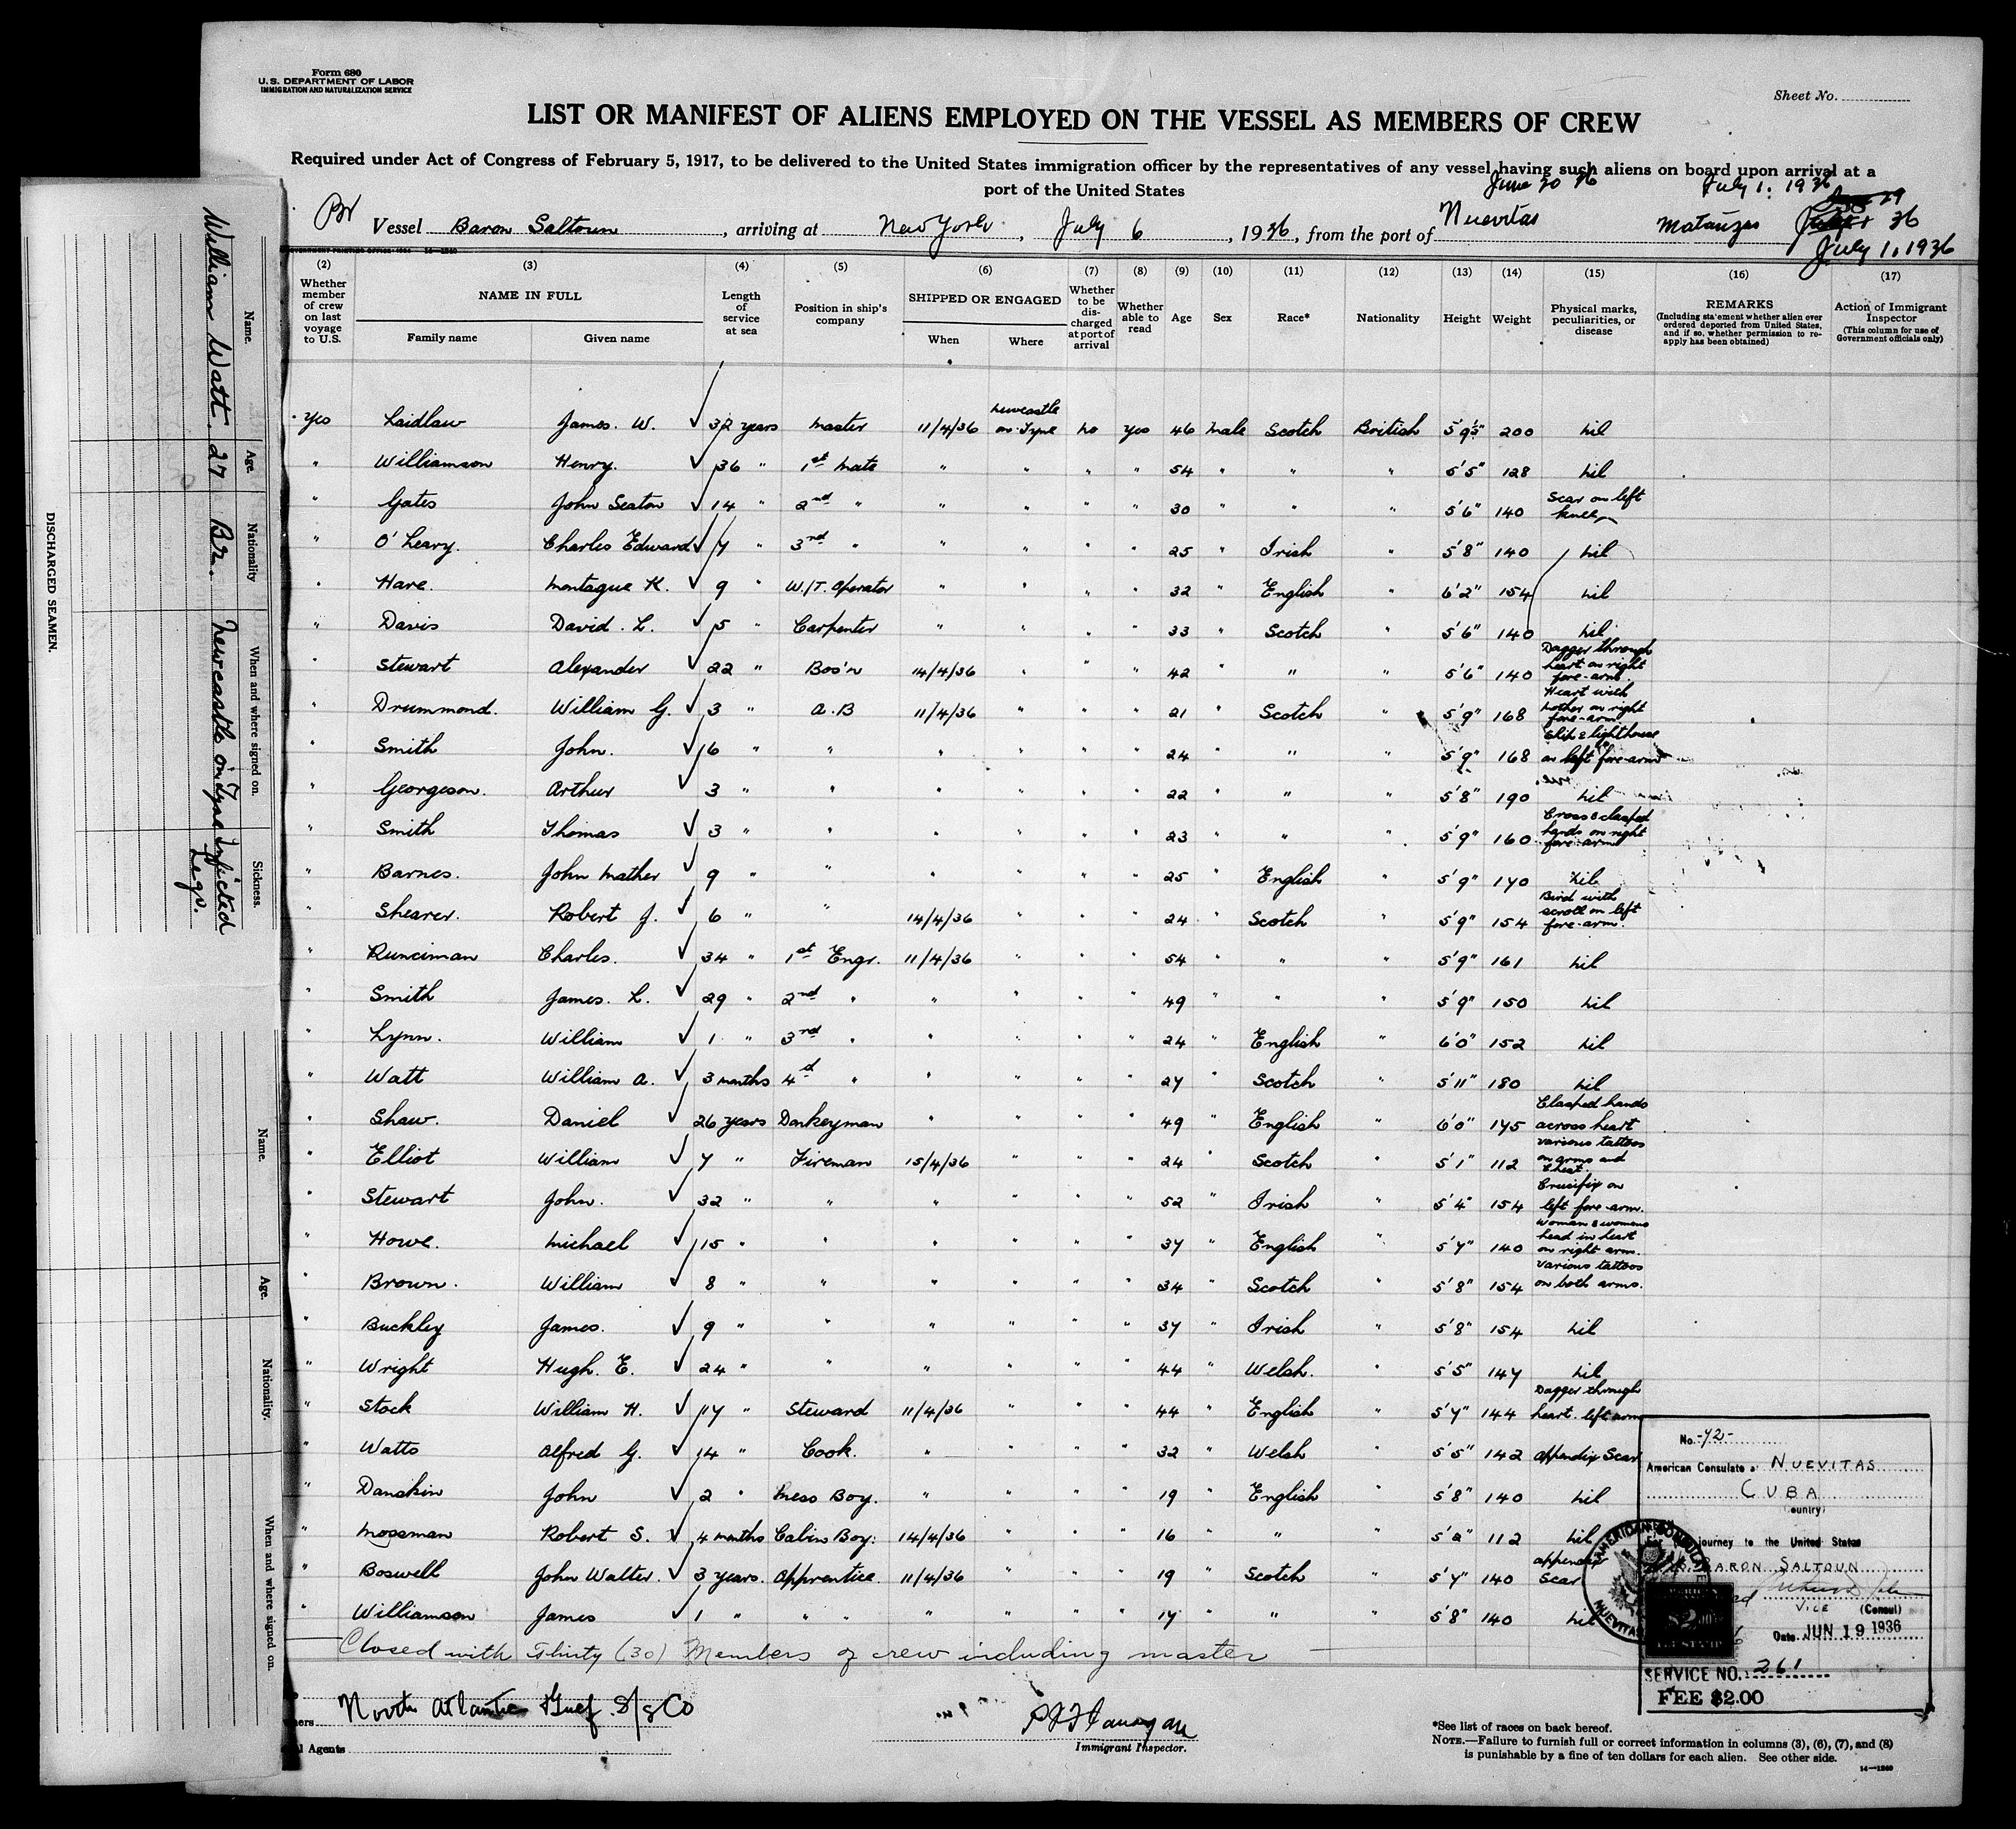 Form 680
U. S. DEPARTMENT OF LABOR
IMMIGRATION AND NATURALIZATION SERVICE
Sheet No.
LIST OR MANIFEST OF ALIENS EMPLOYED ON THE VESSEL AS MEMBERS OF CREW
Required under Act of Congress of February 5, 1917, to be delivered to the United States immigration officer by the representatives of any vessel having such aliens on board upon arrival at a
port of the United States
June 20 36 July 1. 1936
Br Vessel Baron Saltoun, arriving at New York, July 6, 1936, from the port of Nuevitas Matanzas
July 1. 1936
(2) (3) (4) (5) (6) (7) (8) (9) (10) (11) (12) (13) (14) (15) (16) (17)
Whether member of crew on last voyage to U.S. NAME IN FULL Family name Given name Length of service at sea Position in ship's company SHIPPED OR ENGAGED When Where Whether to be discharged at port of arrival Whether able to read Age Sex Race* Nationality Height Weight Physical marks, peculiarities, or disease REMARKS (Including statement whether alien ever ordered deported from United States, and if so, whether permission to reapply has been obtained) Action of Immigrant Inspector (This column for use of Government officials only)
Yes Laidlaw James. W. 32 years Master 11/4/36 Newcastle on-Tyne No Yes 46 Male Scotch British 5'9½" 200 Nil
" Williamson Henry. 36 " 1st Mate " " " " 54 " " " 5'5" 128 Nil
" Gates John Seaton 14 " 2nd " " " " " 30 " " " 5'6" 140 Scar on left knee
" O'Leary. Charles Edward 7 " 3rd " " " " " 25 " Irish " 5'8" 140 Nil
" Hare. Montague K. 9 " W/T. Operator " " " " 32 " English " 6'2" 154 Nil
" Davis David. L. 5 " Carpenter " " " " 33 " Scotch " 5'6" 140 Nil
" Stewart Alexander 22 " Bos'n 14/4/36 " " " 42 " " " 5'6" 140 Dagger through heart on right fore-arm.
" Drummond. William G. 3 " A.B 11/4/36 " " " 21 " Scotch " 5'9" 168 Heart with Mother on right fore-arm
" Smith John. 6 " " " " " " 24 " " " 5'9" 168 Ship & lighthouse on left fore-arm
" Georgeson. Arthur 3 " " " " " " 22 " " " 5'8" 190 Nil
" Smith Thomas 3 " " " " " " 23 " " " 5'9" 160 Cross & clasped hands on right fore-arm
" Barnes. John Mather 9 " " " " " " 25 " English " 5'9" 170 Nil
" Shearer. Robert J. 6 " " 14/4/36 " " " 24 " Scotch " 5'9" 154 Bird with scroll on left fore-arm.
" Runciman Charles. 34 " 1st Engr. 11/4/36 " " " 54 " " " 5'9" 161 Nil
" Smith James. L. 29 " 2nd " " " " " 49 " " " 5'9" 150 Nil
" Lynn. William 1 " 3rd " " " " " 24 " English " 6'0" 152 Nil
" Watt William A. 3 months 4th " " " " " 27 " Scotch " 5'11" 180 Nil
" Shaw. Daniel 26 years Donkeyman " " " " 49 " English " 6'0" 175 Clasped hands across heart
" Elliot William 7 " Fireman 15/4/36 " " " 24 " Scotch " 5'1" 112 Various tattoos on arms and chest.
" Stewart John. 32 " " " " " " 52 " Irish " 5'4" 154 Crucifix on left fore-arm.
" Howe. Michael 15 " " " " " " 37 " English " 5'7" 140 Woman & womans head in heart on right arm.
" Brown. William 8 " " " " " " 34 " Scotch " 5'8" 154 Various tattoos on both arms.
" Buckley James. 9 " " " " " " 37 " Irish " 5'8" 154 Nil
" Wright Hugh. E. 24 " " " " " " 44 " Welsh. " 5'5" 147 Nil
" Stock William H. 17 " Steward 11/4/36 " " " 44 " English " 5'7" 144 Dagger through heart. left arm
" Watts Alfred G. 14 " Cook. " " " " 32 " Welsh " 5'5" 142 Appendix Scar
" Danskin John 2 " Mess Boy. " " " " 19 " English " 5'8" 140 Nil
" Mossman Robert S. 4 months Cabin Boy. 14/4/36 " " " 16 " " " 112 Nil
" Boswell John Walter. 3 years. Apprentice. 11/4/36 " " " 19 " Scotch " 5'7" 140 Appendix Scar
" Williamson James 1 " " " " " " " 17 " " " 5'8" 140 Nil
Closed with Thirty (30) Members of crew including master
North Atlantic & Gulf S/S Co
Agents
Immigrant Inspector.
*See list of races on back hereof.
NOTE.—Failure to furnish full or correct information in columns (3), (6), (7), and (8)
is punishable by a fine of ten dollars for each alien. See other side.
14—1240
No. -72-
American Consulate at NUEVITAS
CUBA
(Country)
journey to the United States
BARON SALTOUN
VICE (Consul)
Date JUN 19 1936
SERVICE NO. 261
FEE $2.00
AMERICAN CONSULATE
NUEVITAS
DISCHARGED SEAMEN.
Name. Age. Nationality When and where signed on. Sickness.
William Watt. 27 Br. Newcastle on Tyne Infected Legs.
Name. Age. Nationality. When and where signed on.